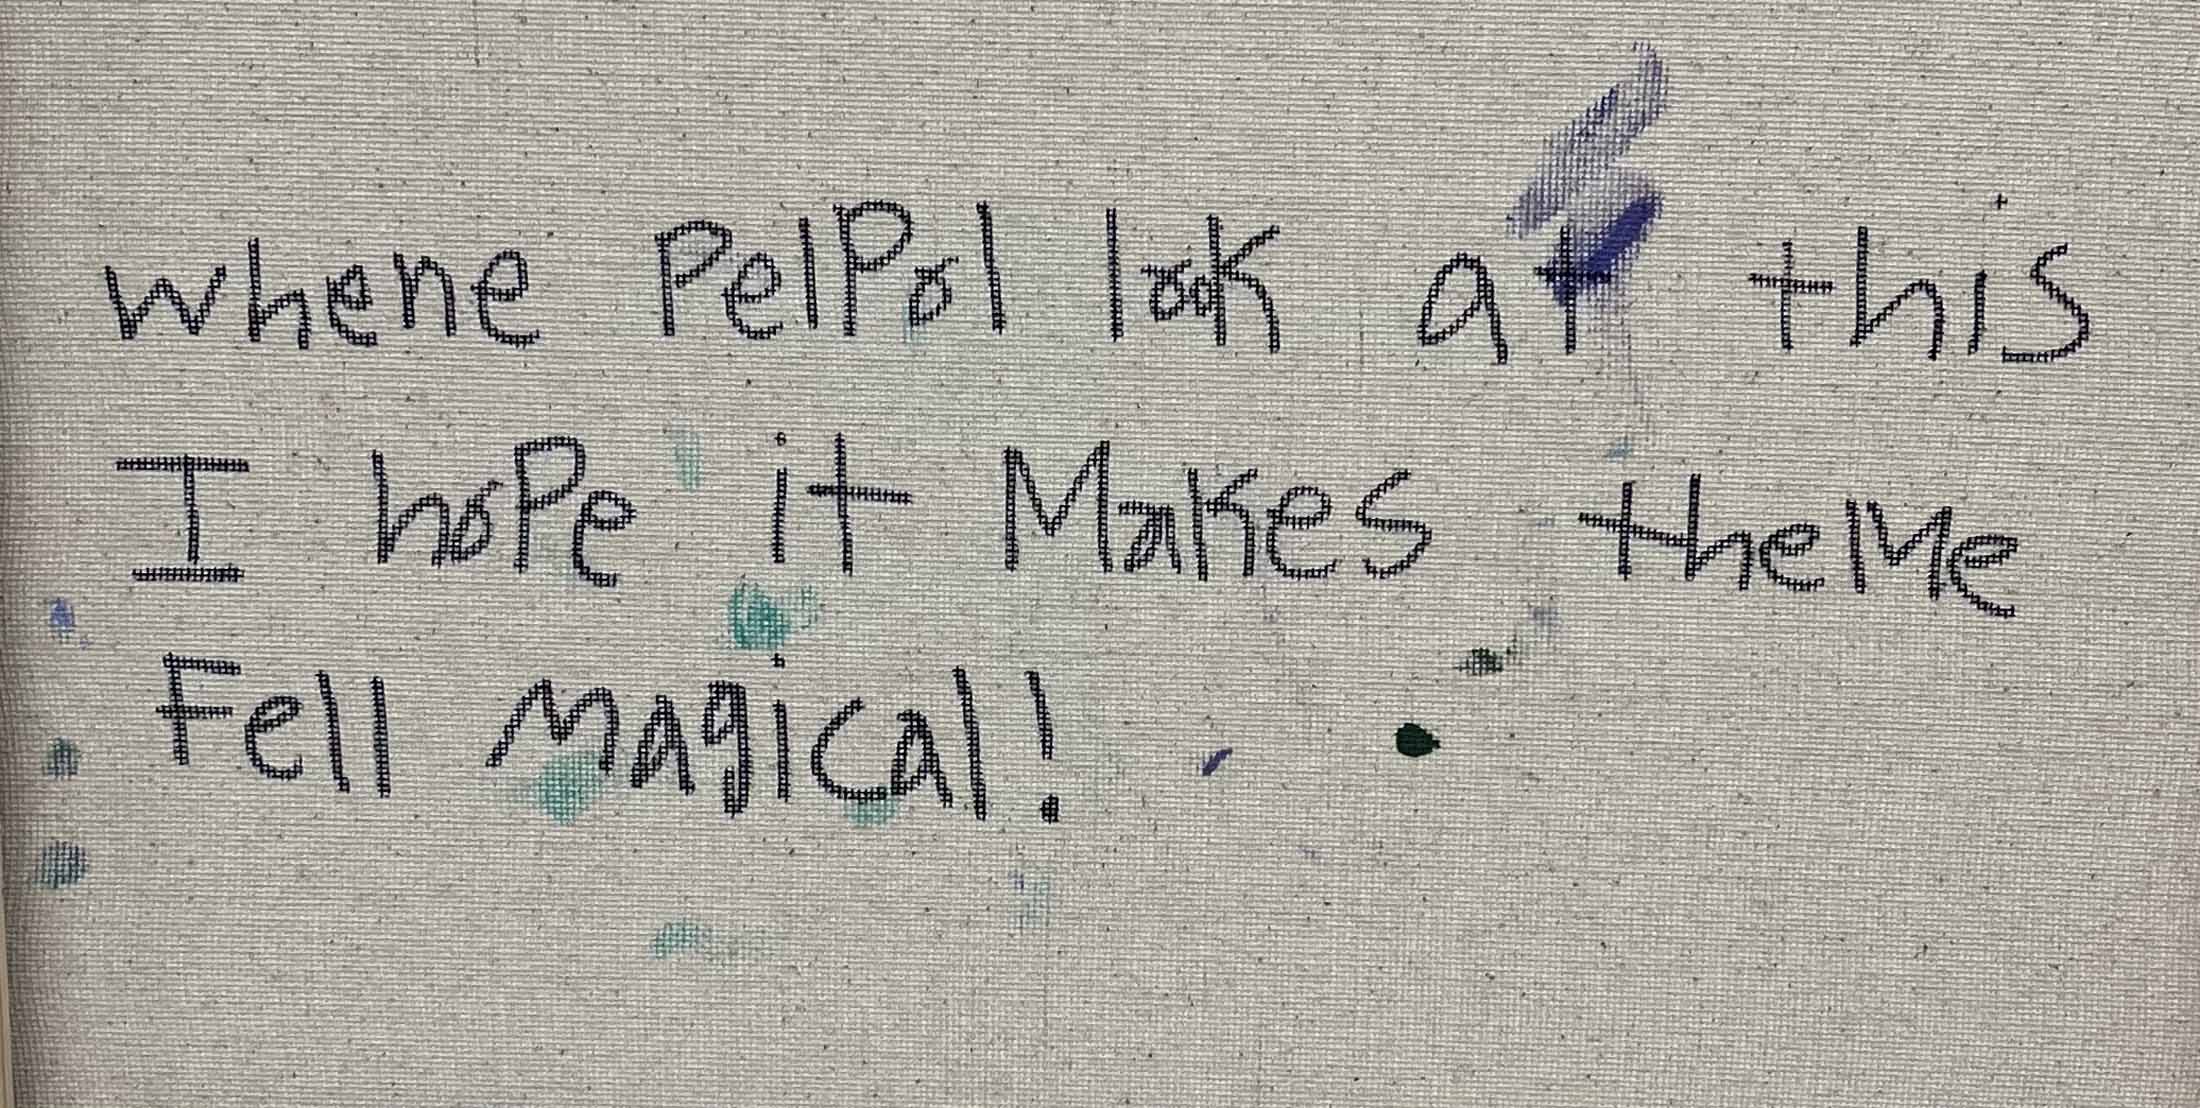 whene PelPol look at this
I hope it Makes theme
Fell magical!